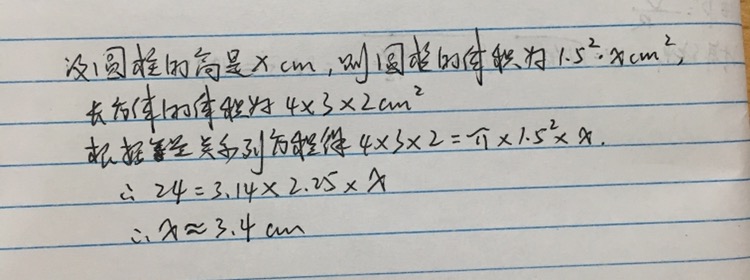 设圆柱的高是x cm,则圆柱的体积为1.5²·xcm²,
长方体的体积为4×3×2cm²
根据等量关系列方程得4×3×2=π×1.5²×x.
∴ 24=3.14×2.25×x
∴ x≈3.4 cm